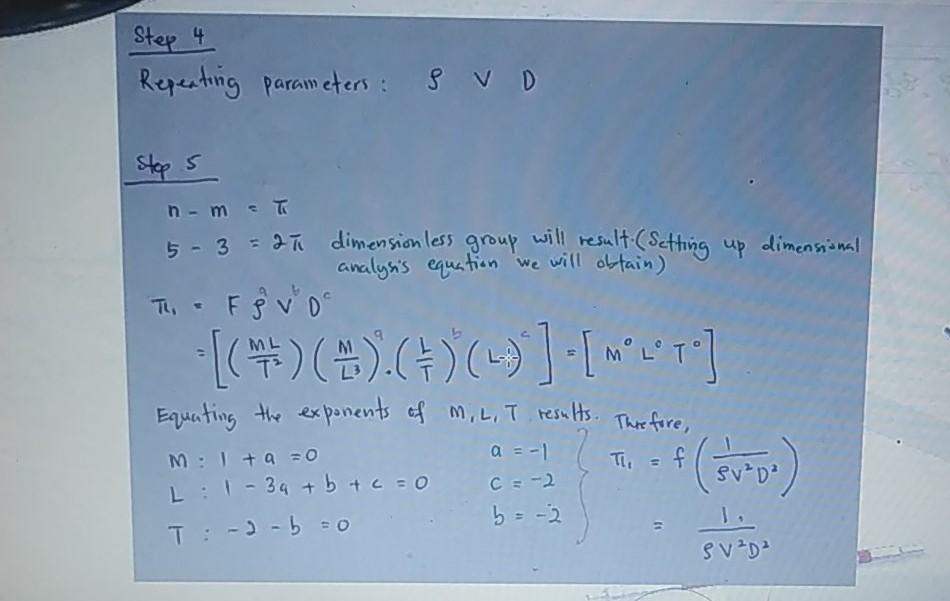 Step 4
Repeating parameters : ρ V D
Step 5
n - m = π
5 - 3 = 2π dimensionless group will result. (Setting up dimensional
analysis equation we will obtain)
π₁ = F ρᵃ Vᵇ Dᶜ
= [(ML/T²) (M/L³)ᵃ . (L/T)ᵇ (L)ᶜ] = [M⁰ L⁰ T⁰]
Equating the exponents of M, L, T results. Therefore,
M : 1 + a = 0 a = -1 π₁ = f (1/ρV²D²)
L : 1 - 3a + b + c = 0 c = -2
T : -2 - b = 0 b = -2 = 1/ρV²D²